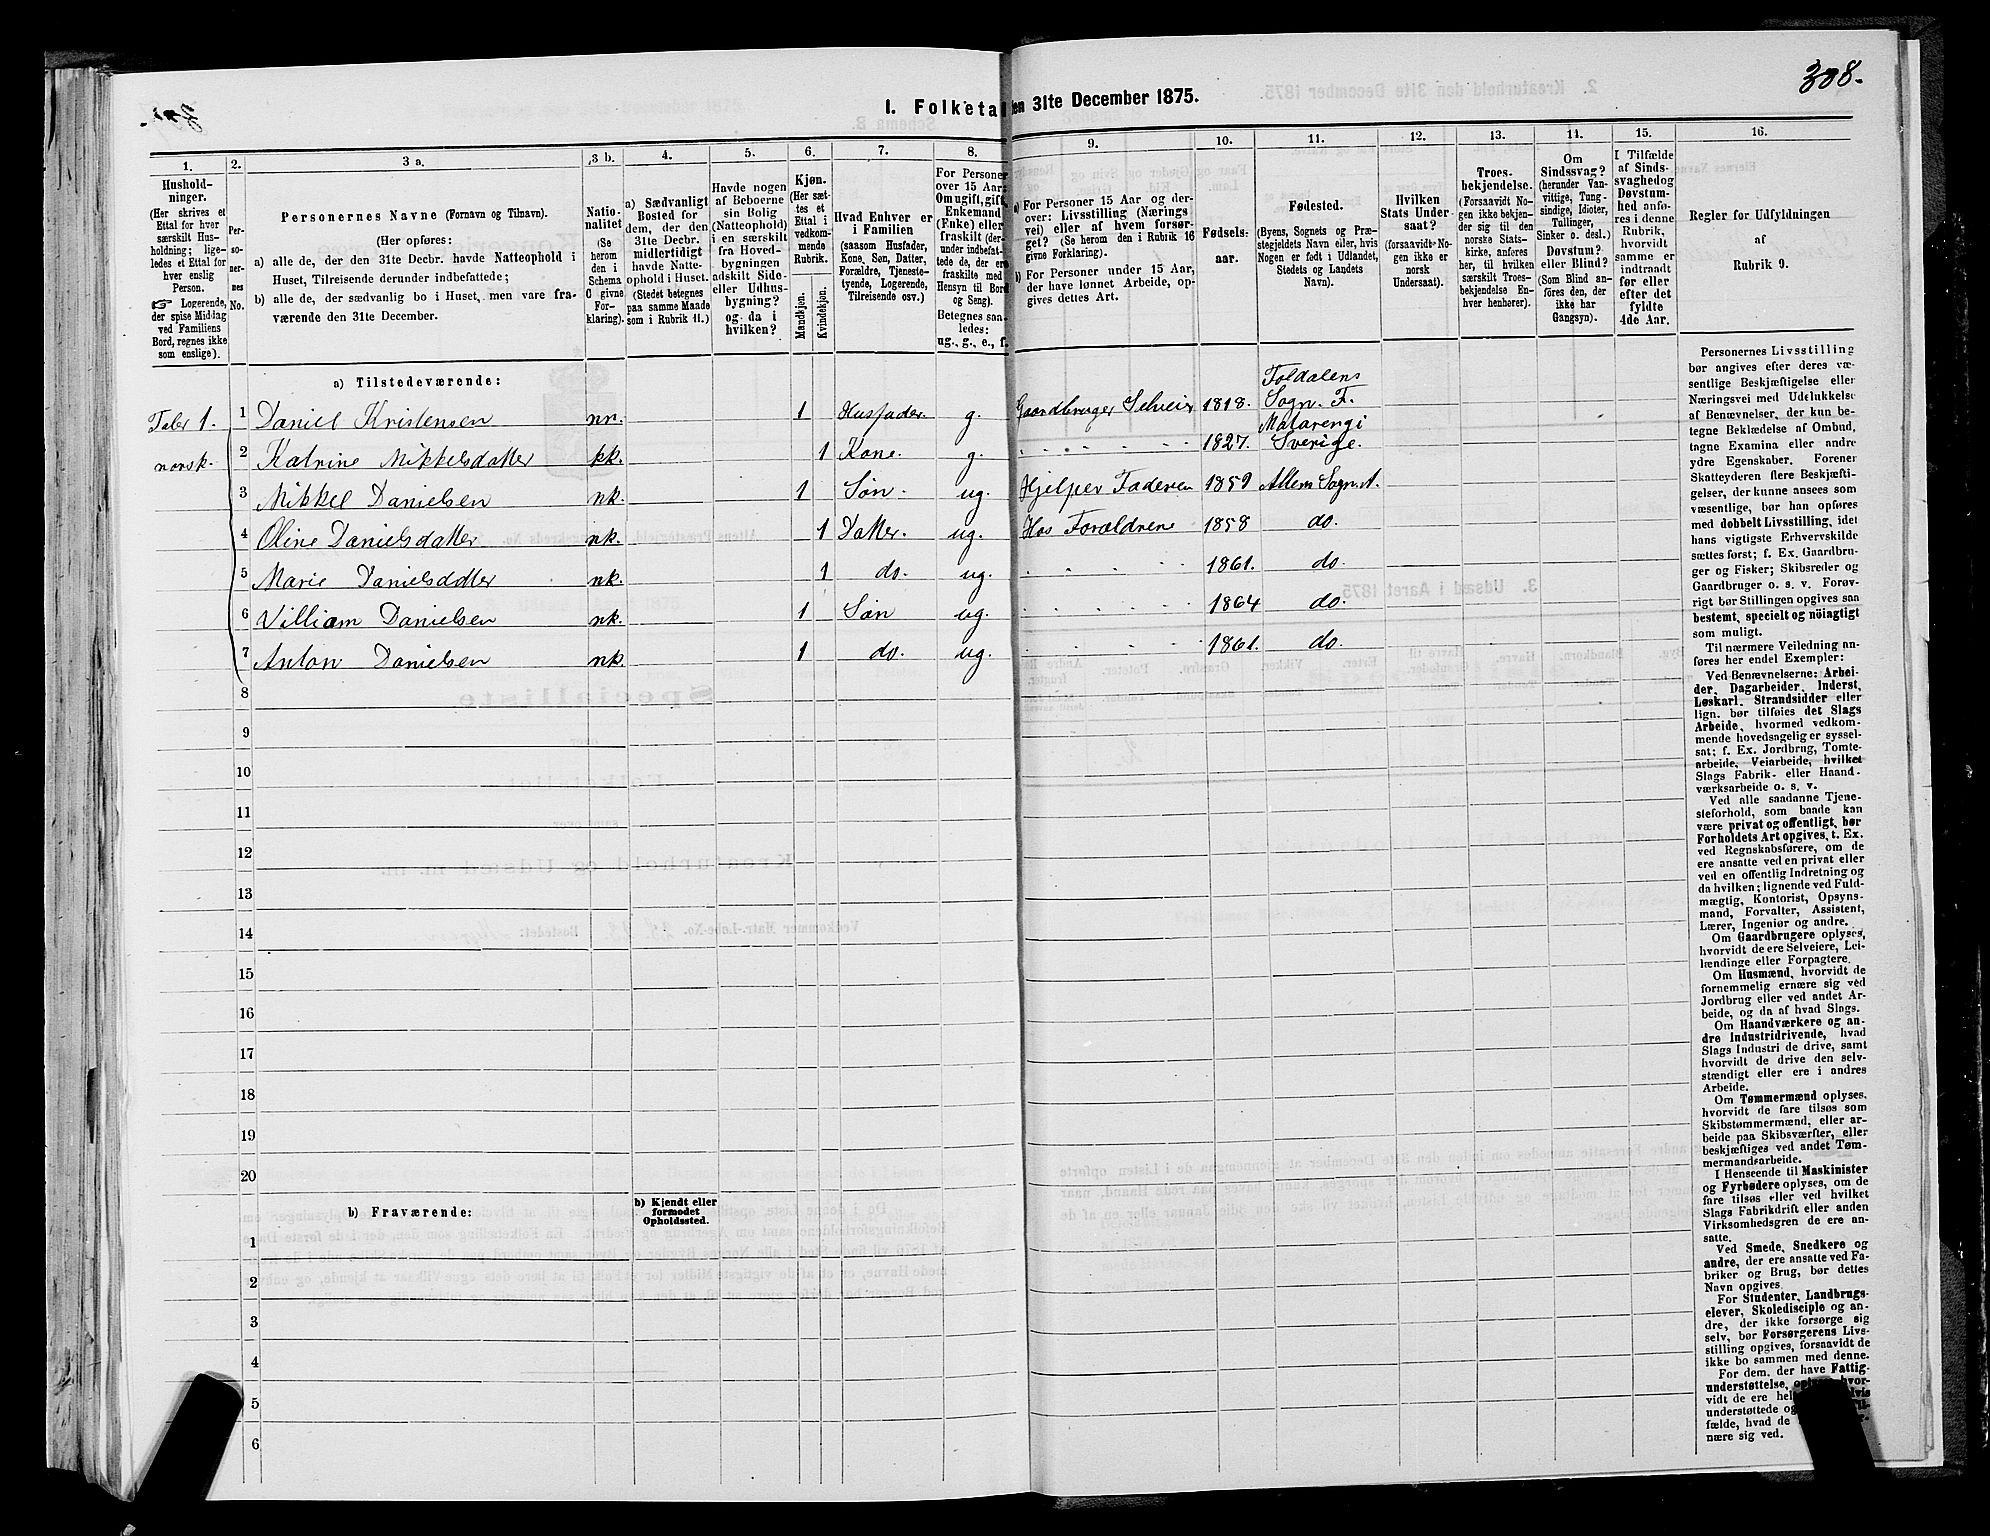 308.
I. Folketal den 31te December 1875.
1.
Hushold-
ninger.
(Her skrives et
Ettal for hver
særskilt Hus-
holdning; lige-
ledes et Ettal for
hver enslig
Person.
☞ Logerende,
der spise Middag
ved Familiens
Bord, regnes ikke
som enslige).
2.
Per-
so-
ner-
nes
No.
3 a.
Personernes Navne (Fornavn og Tilnavn).
(Her opføres:
a) alle de, der den 31te Decbr. havde Natteophold i
Huset, Tilreisende derunder indbefattede;
b) alle de, der sædvanlig bo i Huset, men vare fra-
værende den 31te December.
3 b.
Natio-
nalitet
(Se
herom
den i
Schema
C givne
For-
klaring).
4.
a) Sædvanligt
Bosted for
dem, der den
31te Decbr.
midlertidigt
havde Natte-
ophold i Huset.
(Stedet betegnes
paa samme Maade
som i Rubrik 11.)
5.
Havde nogen
af Beboerne
sin Bolig
(Natteophold)
i en særskilt
fra Hoved-
bygningen
adskilt Side-
eller Udhus-
bygning?
og da i
hvilken?
6.
Kjøn.
(Her sæt-
tes et
Ettal i
vedkom-
mende
Rubrik.
Mandkjøn.
Kvindekjøn.
7.
Hvad Enhver er
i Familien
(saasom Husfader,
Kone, Søn, Datter,
Forældre, Tjeneste-
tyende, Logerende,
Tilreisende osv.)
8.
For Personer
over 15 Aar:
Om ugift, gift,
Enkemand
(Enke) eller
fraskilt (der-
under indbefat-
tede de, der ere
fraskilte med
Hensyn til Bord
og Seng).
Betegnes saa-
ledes:
ug., g., e., f.
9.
a) For Personer 15 Aar og der-
over: Livsstilling (Nærings-
vei) eller af hvem forsør-
get? (Se herom den i Rubrik 16
givne Forklaring).
b) For Personer under 15 Aar,
der have lønnet Arbeide, op-
gives dettes Art.
10.
Fødsels-
aar.
11.
Fødested.
(Byens, Sognets og Præ-
stegjeldets Navn eller, hvis
Nogen er født i Udlandet,
Stedets og Landets
Navn).
12.
Hvilken
Stats Under-
saat?
(forsaavidt No-
gen ikke er
norsk
Undersaat).
13.
Troes-
bekjendelse.
(Forsaavidt No-
gen ikke bekjen-
der sig til den
norske Stats-
kirke, anføres
her, til hvilken
særskilt Troes-
bekjendelse En-
hver henhører).
14.
Om
Sindssvag?
(herunder Van-
vittige, Tung-
sindige, Idioter,
Tullinger,
Sinker o. desl.)
Døvstum?
eller Blind?
(Som Blind an-
føres den, der
ikke har
Gangsyn).
15.
I Tilfælde
af Sinds-
svaghed og
Døvstum-
hed anfø-
res i denne
Rubrik,
hvorvidt
samme er
indtraadt
før eller
efter det
fyldte
4de Aar.
16.
Regler for Udfyldningen
af
Rubrik 9.
a) Tilstedeværende:
Taler norsk. 1.
1 Daniel Kristensen nn. 1 Husfader. g. Gaardbruger Selveier 1818. Foldalens Sogn. F.
2 Katrine Mikkelsdatter kk. 1 Kone. g. 1827. Matarengi Sverige.
3 Mikkel Danielsen nk. 1 Søn. ug. Hjelper Faderen 1859 Altens Sogn. A.
4 Oline Danielsdatter nk. 1 Datter. ug. Hos Forældrene 1858 do.
5 Marie Danielsdatter nk. 1 do. ug. 1861. do.
6 Villiam Danielsen nk. 1 Søn ug. 1864 do.
7 Anton Danielsen nk. 1 do. ug. 1861. do.
8
9
10
11
12
13
14
15
16
17
18
19
20
b) Fraværende:
b) Kjendt eller
formodet
Opholdssted.
1
2
3
4
5
6
Personernes Livsstilling
bør angives efter deres væ-
sentlige Beskjæftigelse eller
Næringsvei med Udelukkelse
af Benævnelser, der kun be-
tegne Beklædelse af Ombud,
tagne Examina eller andre
ydre Egenskaber. Forener
Skatteyderen flere Beskjæfti-
gelser, der kunne ansees som
væsentlige, bør han opføres
med dobbelt Livsstilling, idet
hans vigtigste Erhvervskilde
sættes først; f. Ex. Gaardbru-
ger og Fisker; Skibsreder og
Gaardbruger o. s. v. Forøv-
rigt bør Stillingen opgives saa
bestemt, specielt og nöiagtigt
som muligt.
Til nærmere Veiledning an-
føres her endel Exempler:
Ved Benævnelserne: Arbei-
der, Dagarbeider, Inderst,
Løskarl, Strandsidder eller
lign. bør tilføies det Slags
Arbeide, hvormed vedkom-
mende hovedsagelig er syssel-
sat; f. Ex. Jordbrug, Tomte-
arbeide, Veiarbeide, hvilket
Slags Fabrik- eller Haand-
værksarbeide o. s. v.
Ved alle saadanne Tjene-
steforhold, som baade kan
være privat og offentligt, bør
Forholdets Art opgives, t. Ex.
ved Regnskabsførere, om de
ere ansatte ved en privat eller
ved en offentlig Indretning og
da hvilken; lignende ved Fuld-
mægtig, Kontorist, Opsyns-
mand, Forvalter, Assistent,
Lærer, Ingeniør og andre.
Om Gaardbrugere oplyses,
hvorvidt de ere Selveiere, Lei-
lændinge eller Forpagtere.
Om Husmænd, hvorvidt de
fornemmelig ernære sig ved
Jordbrug eller ved andet Ar-
beide, og da af hvad Slags.
Om Haandværkere og an-
dre Industridrivende, hvad
Slags Industri de drive, samt
hvorvidt de drive den selv-
stændigt eller ere i andres
Arbeide.
Om Tømmermænd oplyses,
hvorvidt de fare tilsøs som
Skibstømmermænd, eller ar-
beide paa Skibsværfter, eller
beskjæftiges ved andet Tøm-
mermandsarbeide.
I Henseende til Maskinister
og Fyrbødere oplyses, om de
fare tilsøs eller ved hvilket
Slags Fabrikdrift eller anden
Virksomhedsgren de ere an-
satte.
Ved Smede, Snedkere og
andre, der ere ansatte ved Fa-
briker og Brug, bør dettes
Navn opgives.
For Studenter, Landbrugs-
elever, Skoledisciple og an-
dre, der ikke forsørge sig
selv, bør Forsørgerens Livs-
stilling opgives, forsaavidt de
ikke bo sammen med denne.
For dem, der have Fattig-
understøttelse, oplyses, hvor-
vidt de ere
understøttede og
fælde, hvad de
nære sig ved.